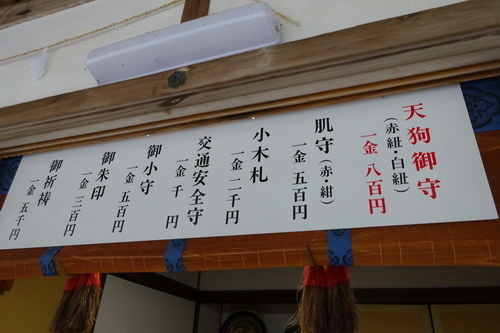 天狗御守
(赤紐・白紐)
一金 八百円
肌守(赤・紺)
一金 五百円
小木札
一金 二千円
交通安全守
一金 千 円
御小守
一金 五百円
御朱印
一金 三百円
御祈祷
一金 五千円